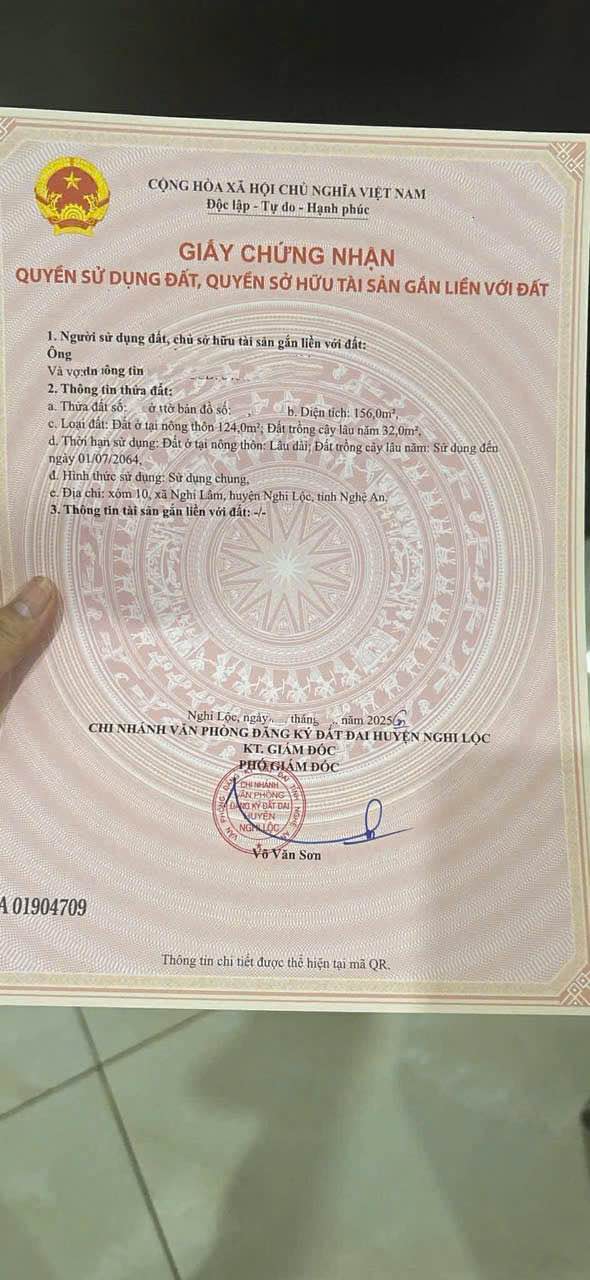 CỘNG HÒA XÃ HỘI CHỦ NGHĨA VIỆT NAM
Độc lập - Tự do - Hạnh phúc
GIẤY CHỨNG NHẬN
QUYỀN SỬ DỤNG ĐẤT, QUYỀN SỞ HỮU TÀI SẢN GẮN LIỀN VỚI ĐẤT
1. Người sử dụng đất, chủ sở hữu tài sản gắn liền với đất:
Ông
Và vợ:
2. Thông tin thửa đất:
a. Thửa đất số: ở tờ bản đồ số: , b. Diện tích: 156,0m²,
c. Loại đất: Đất ở tại nông thôn 124,0m²; Đất trồng cây lâu năm 32,0m²,
d. Thời hạn sử dụng: Đất ở tại nông thôn: Lâu dài; Đất trồng cây lâu năm: Sử dụng đến
ngày 01/07/2064,
đ. Hình thức sử dụng: Sử dụng chung,
e. Địa chỉ: xóm 10, xã Nghi Lâm, huyện Nghi Lộc, tỉnh Nghệ An.
3. Thông tin tài sản gắn liền với đất: -/-
Nghi Lộc, ngày tháng năm 2025
CHI NHÁNH VĂN PHÒNG ĐĂNG KÝ ĐẤT ĐAI HUYỆN NGHI LỘC
KT. GIÁM ĐỐC
PHÓ GIÁM ĐỐC
VĂN PHÒNG ĐĂNG KÝ ĐẤT ĐAI TỈNH NGHỆ AN
CHI NHÁNH
VĂN PHÒNG
ĐĂNG KÝ ĐẤT ĐAI
HUYỆN
NGHI LỘC
Võ Văn Sơn
A 01904709
Thông tin chi tiết được thể hiện tại mã QR.